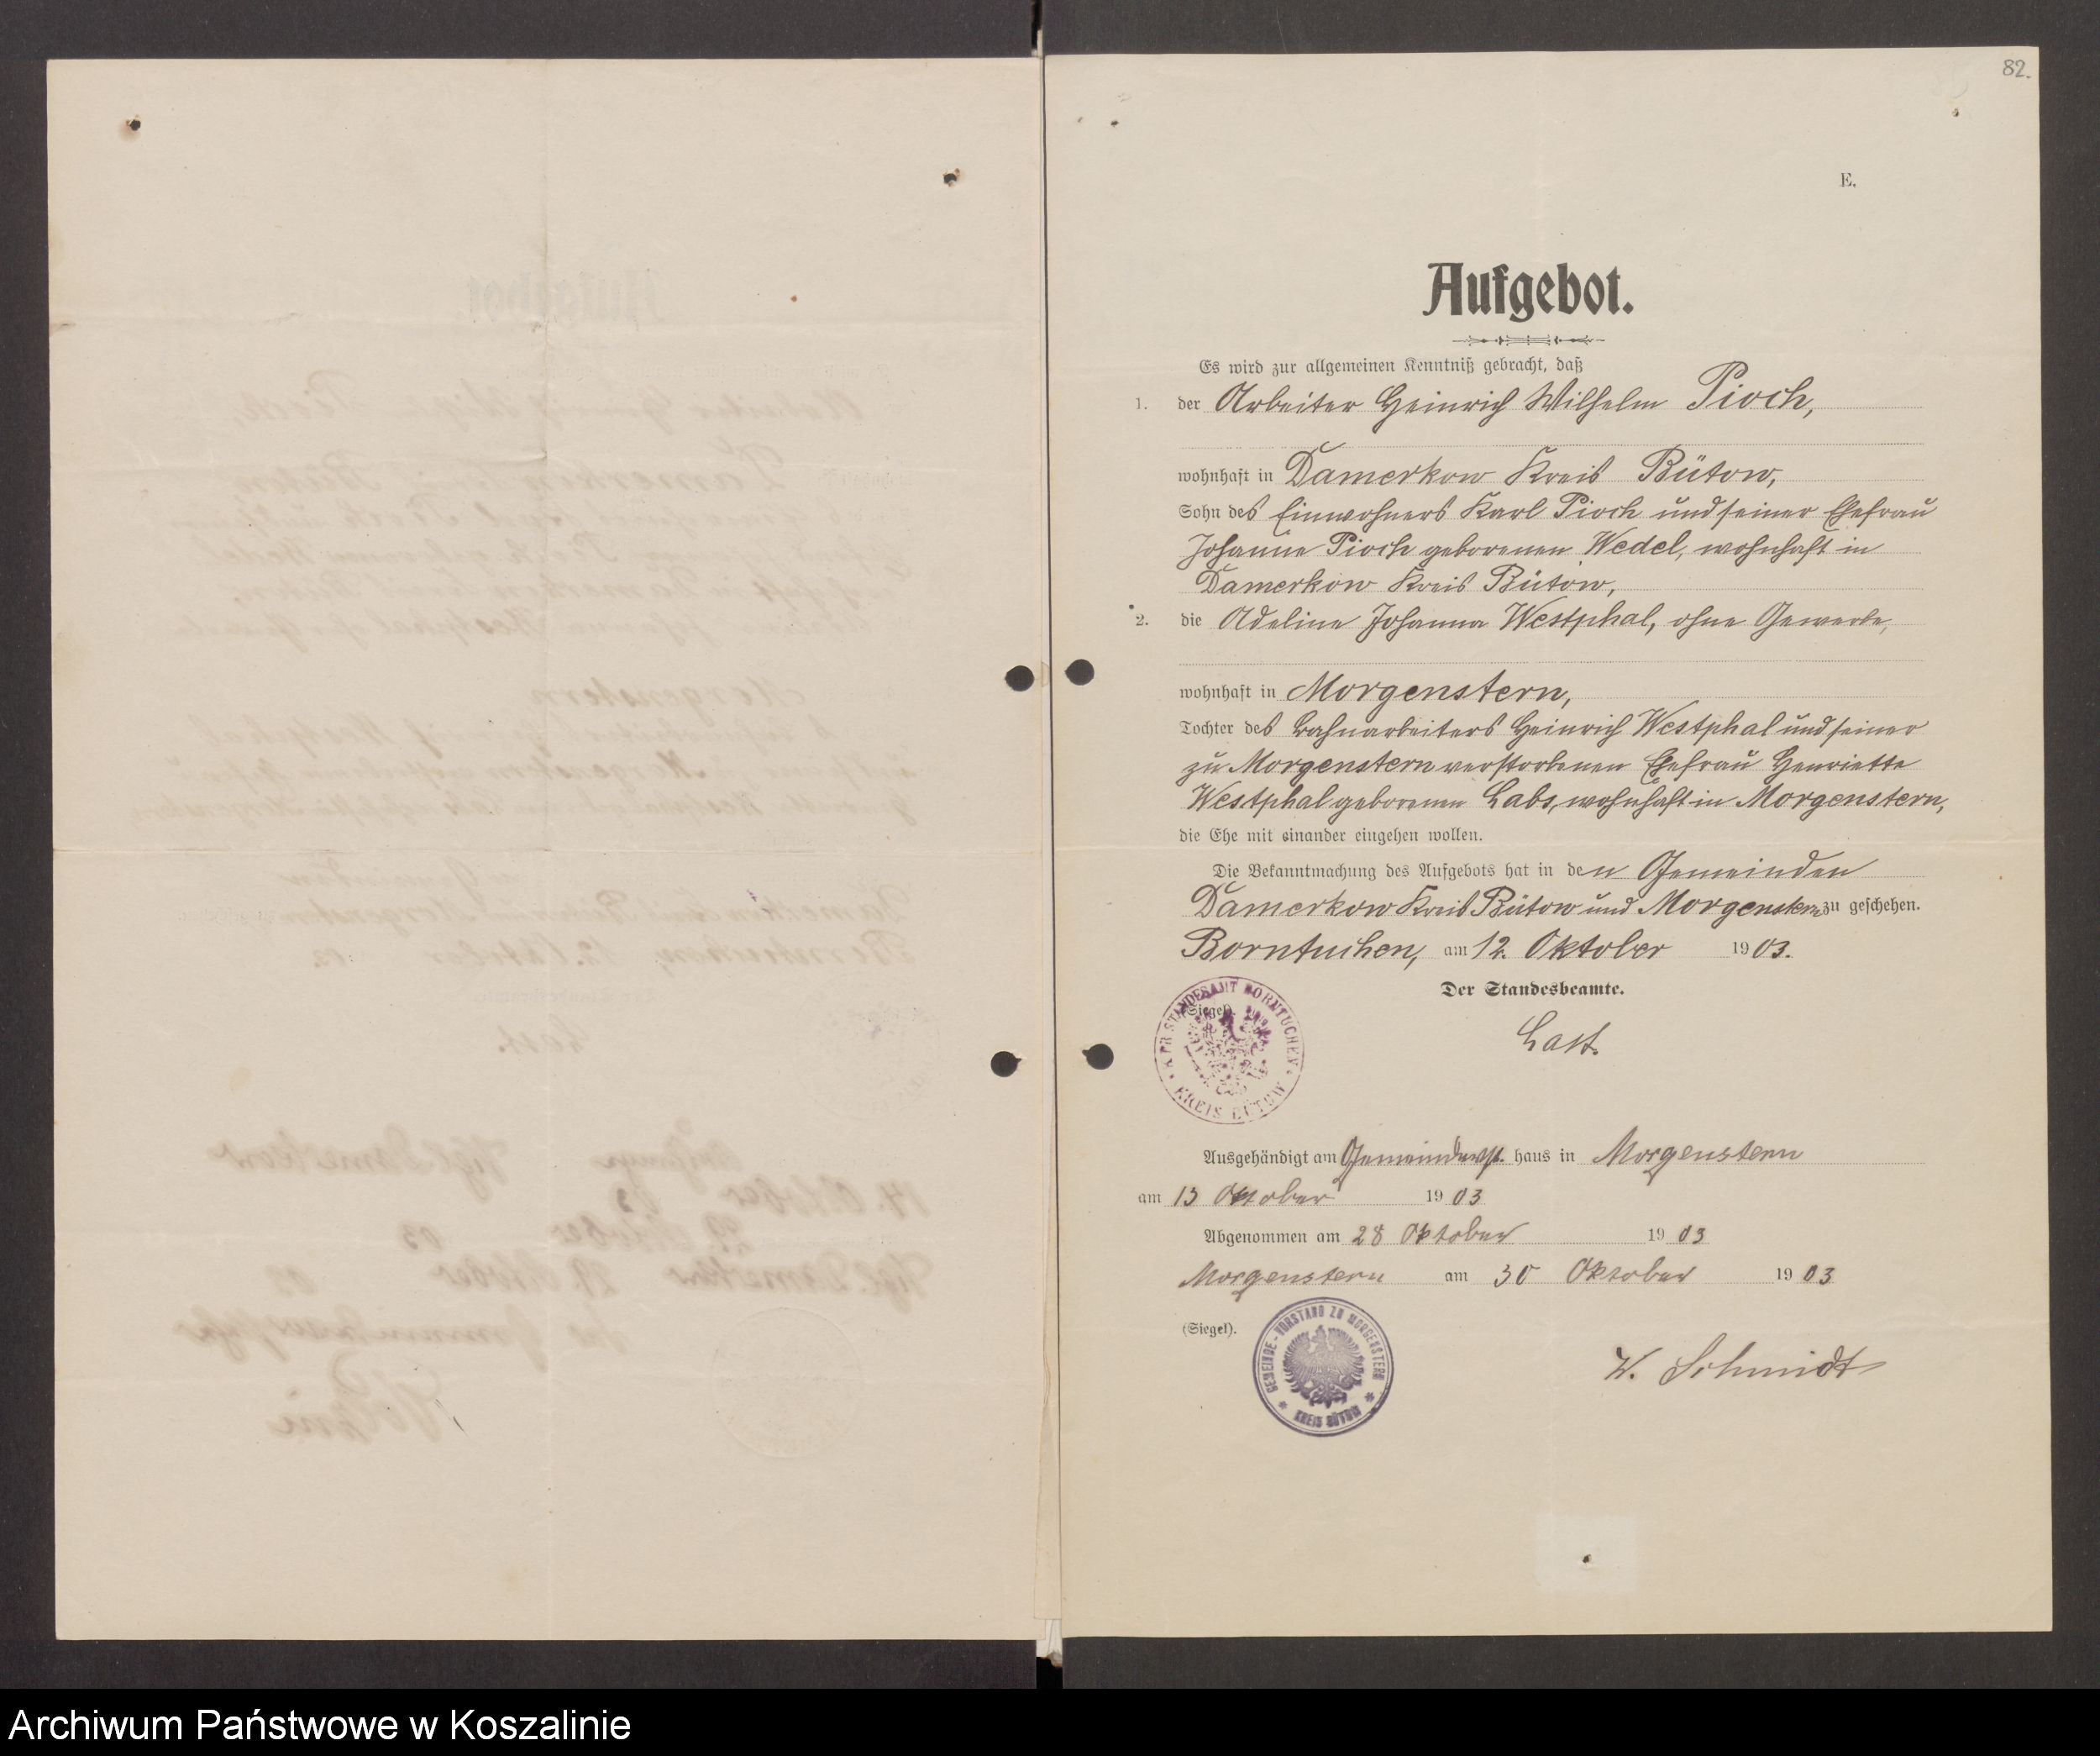 82.
E.
Aufgebot.
Es wird zur allgemeinen Kenntniß gebracht, daß
1. der Arbeiter Heinrich Wilhelm Pioch,
wohnhaft in Damerkow Kreis Bütow,
Sohn des Einwohners Karl Pioch und seiner Ehefrau
Johanne Pioch geborenen Wedel, wohnhaft in
Damerkow Kreis Bütow,
2. die Adeline Johanna Westphal, ohne Gewerbe,
wohnhaft in Morgenstern,
Tochter des Bahnarbeiters Heinrich Westphal und seiner
zu Morgenstern verstorbenen Ehefrau Henriette
Westphal geborenen Labs, wohnhaft in Morgenstern,
die Ehe mit einander eingehen wollen.
Die Bekanntmachung des Aufgebots hat in den Gemeinden
Damerkow Kreis Bütow und Morgenstern zu geschehen.
Borntuchen, am 12. Oktober 1903.
Der Standesbeamte.
(Siegel).
K. PR. STANDESAMT BORNTUCHEN
KREIS BÜTOW
Last.
Ausgehändigt am haus in Morgenstern
am 13 Oktober 1903
Abgenommen am 28 Oktober 1903
Morgenstern am 30 Oktober 1903
(Siegel).
GEMEINDE-VORSTAND ZU MORGENSTERN
KREIS BÜTOW
W. Schmidt
Archiwum Państwowe w Koszalinie